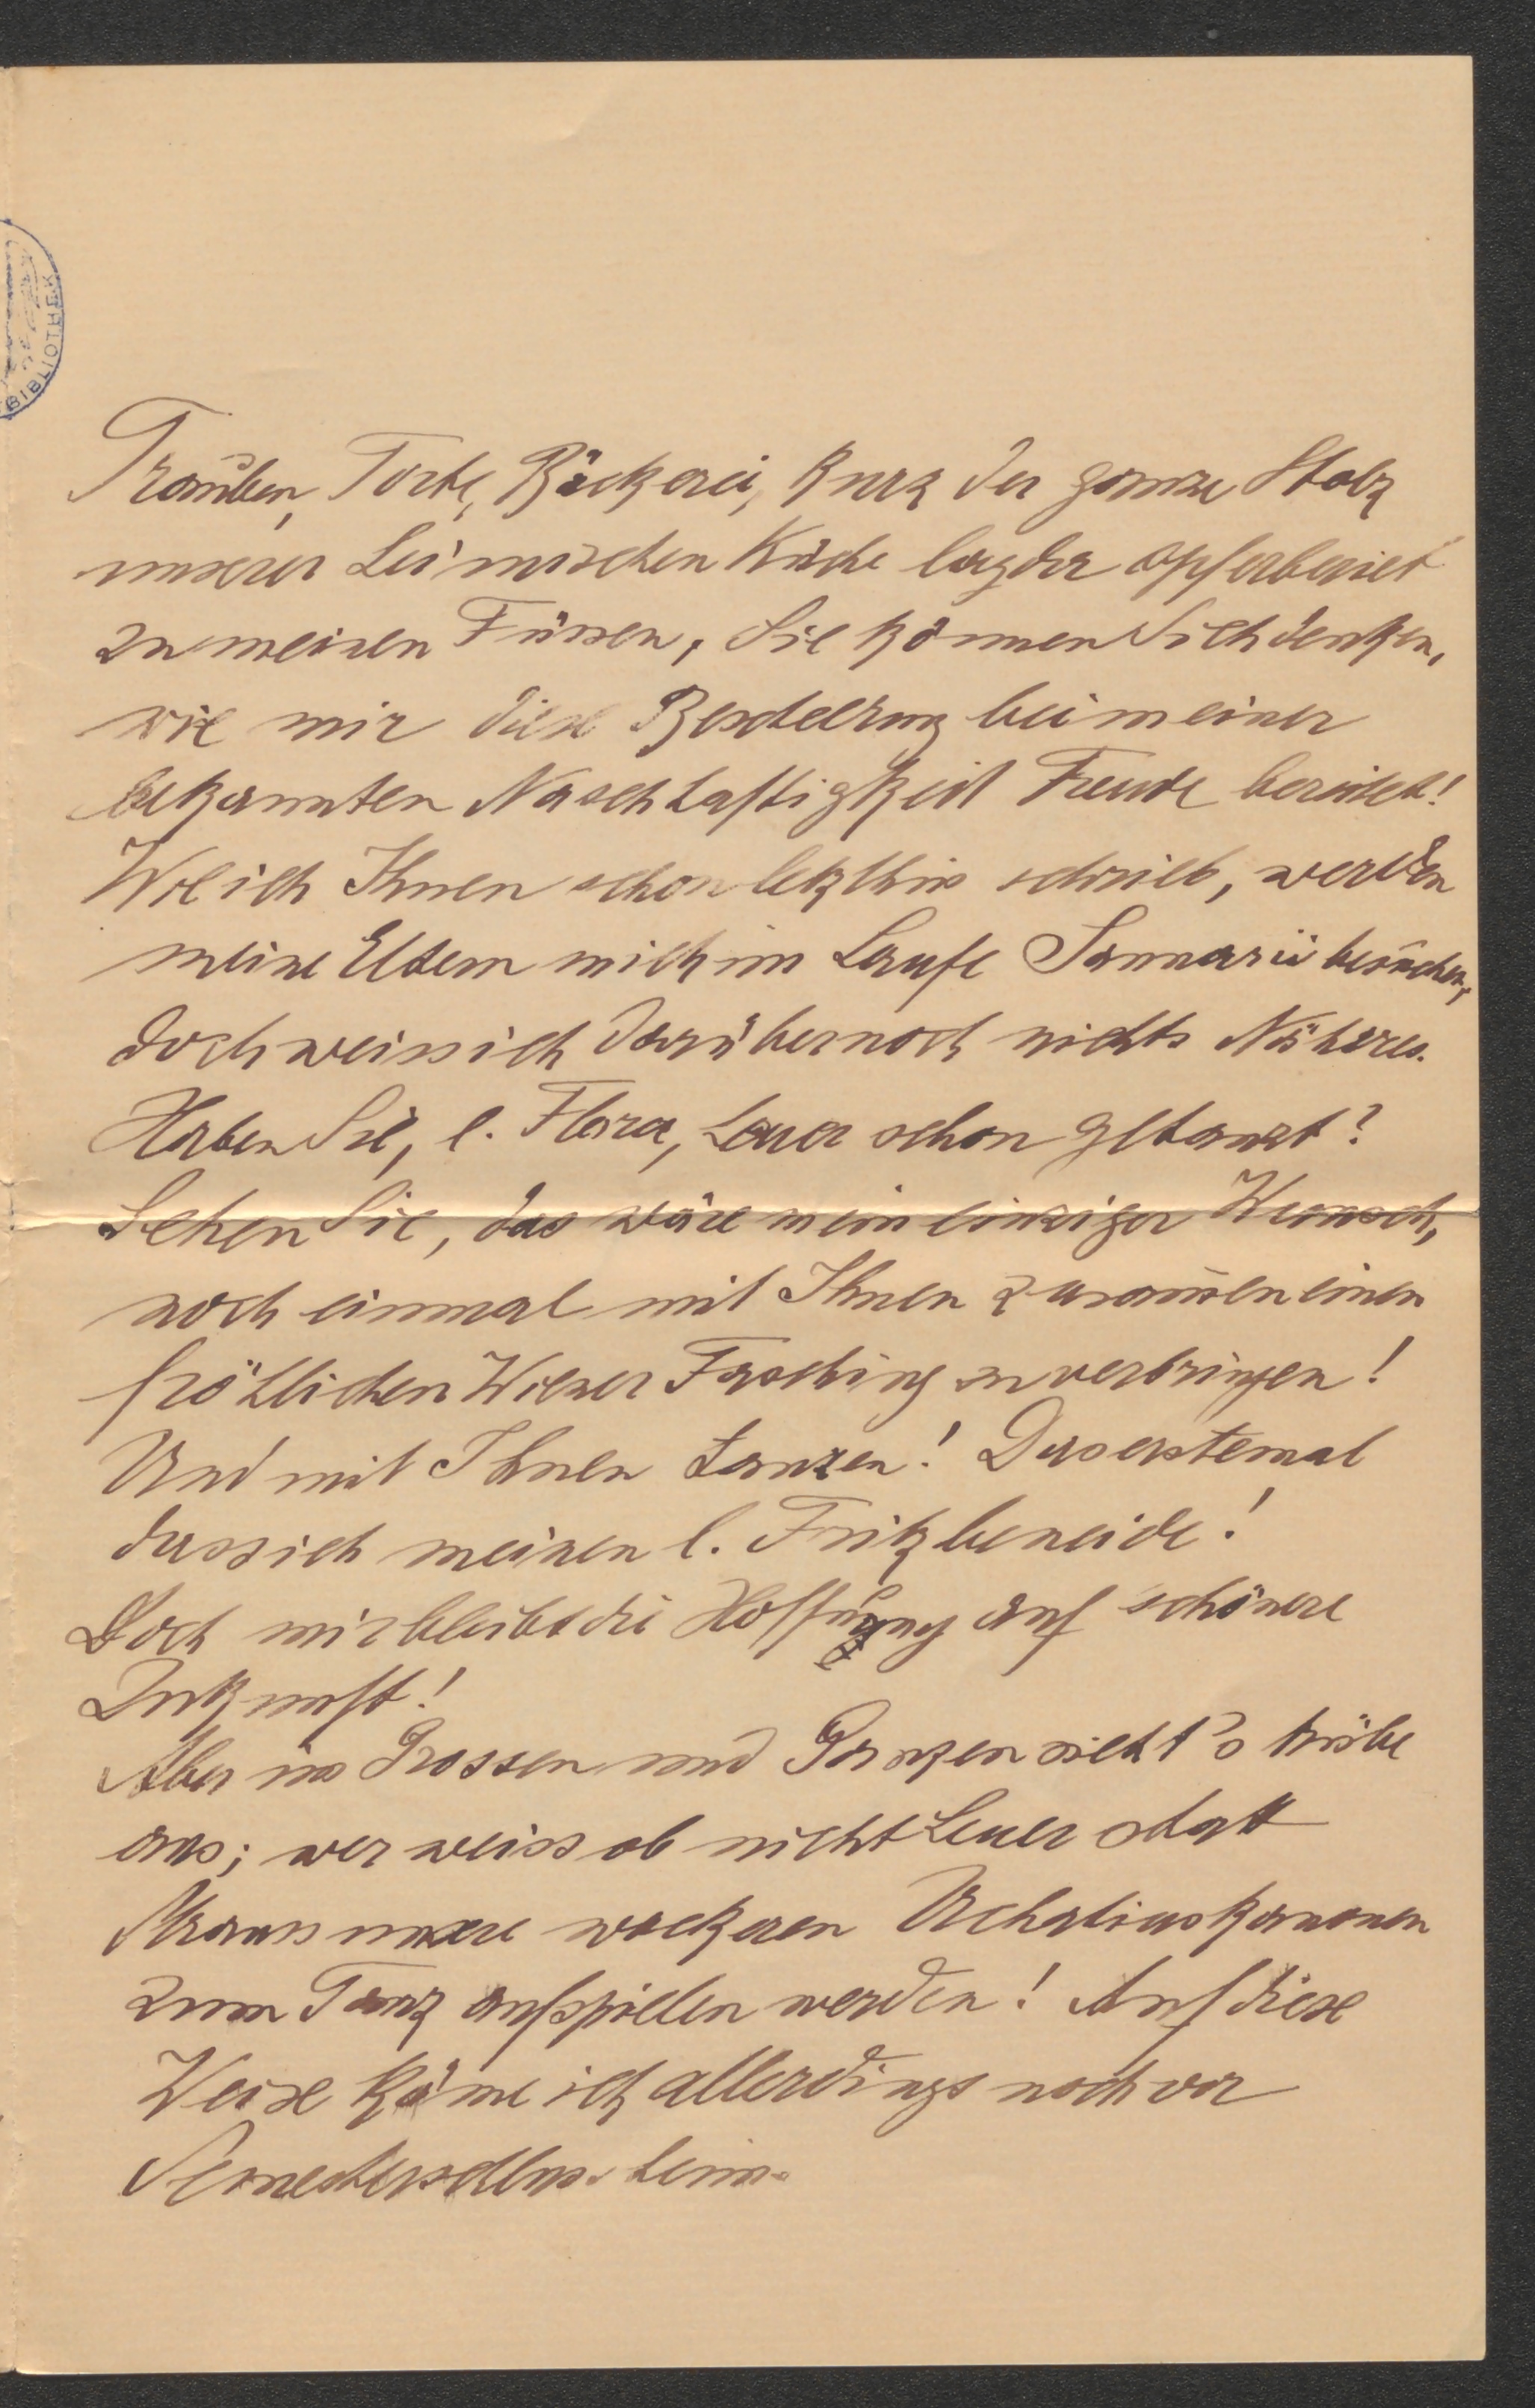 BIBLIOTHEK
Trauben, Torte, Bäckerei, kurz der ganze Stolz
unserer heimischen Küche lag da opferbereit
zu meinen Füssen, Sie können Sich denken,
wie mir diese Bescherung bei meiner
bekannten Naschhaftigkeit Freude bereitet!
Wie ich Ihnen schon letzthin schrieb, werden
meine Eltern mich im Laufe Januar besuchen,
doch weiss ich darüber noch nichts Näheres.
Haben Sie, l. Flora, heuer schon getanzt?
Sehen Sie, das wäre mein einziger Wunsch,
noch einmal mit Ihnen zusam̅en einen
fröhlichen Wiener Fasching zu verbringen!
Und mit Ihnen tanzen! Das erstemal
dass ich meinen l. Fritz beneide!
Doch mir bleibt die Hoffnung auf schönere
Zukunft!
Aber im Grossen und Ganzen sieht's trübe
aus; wer weiss ob nicht heuer statt
Strauss unsere wackeren Uchatiuskanonen
zum Tanz aufspielen werden! Auf diese
Weise käme ich allerdings noch vor
Semesterschluss heim.